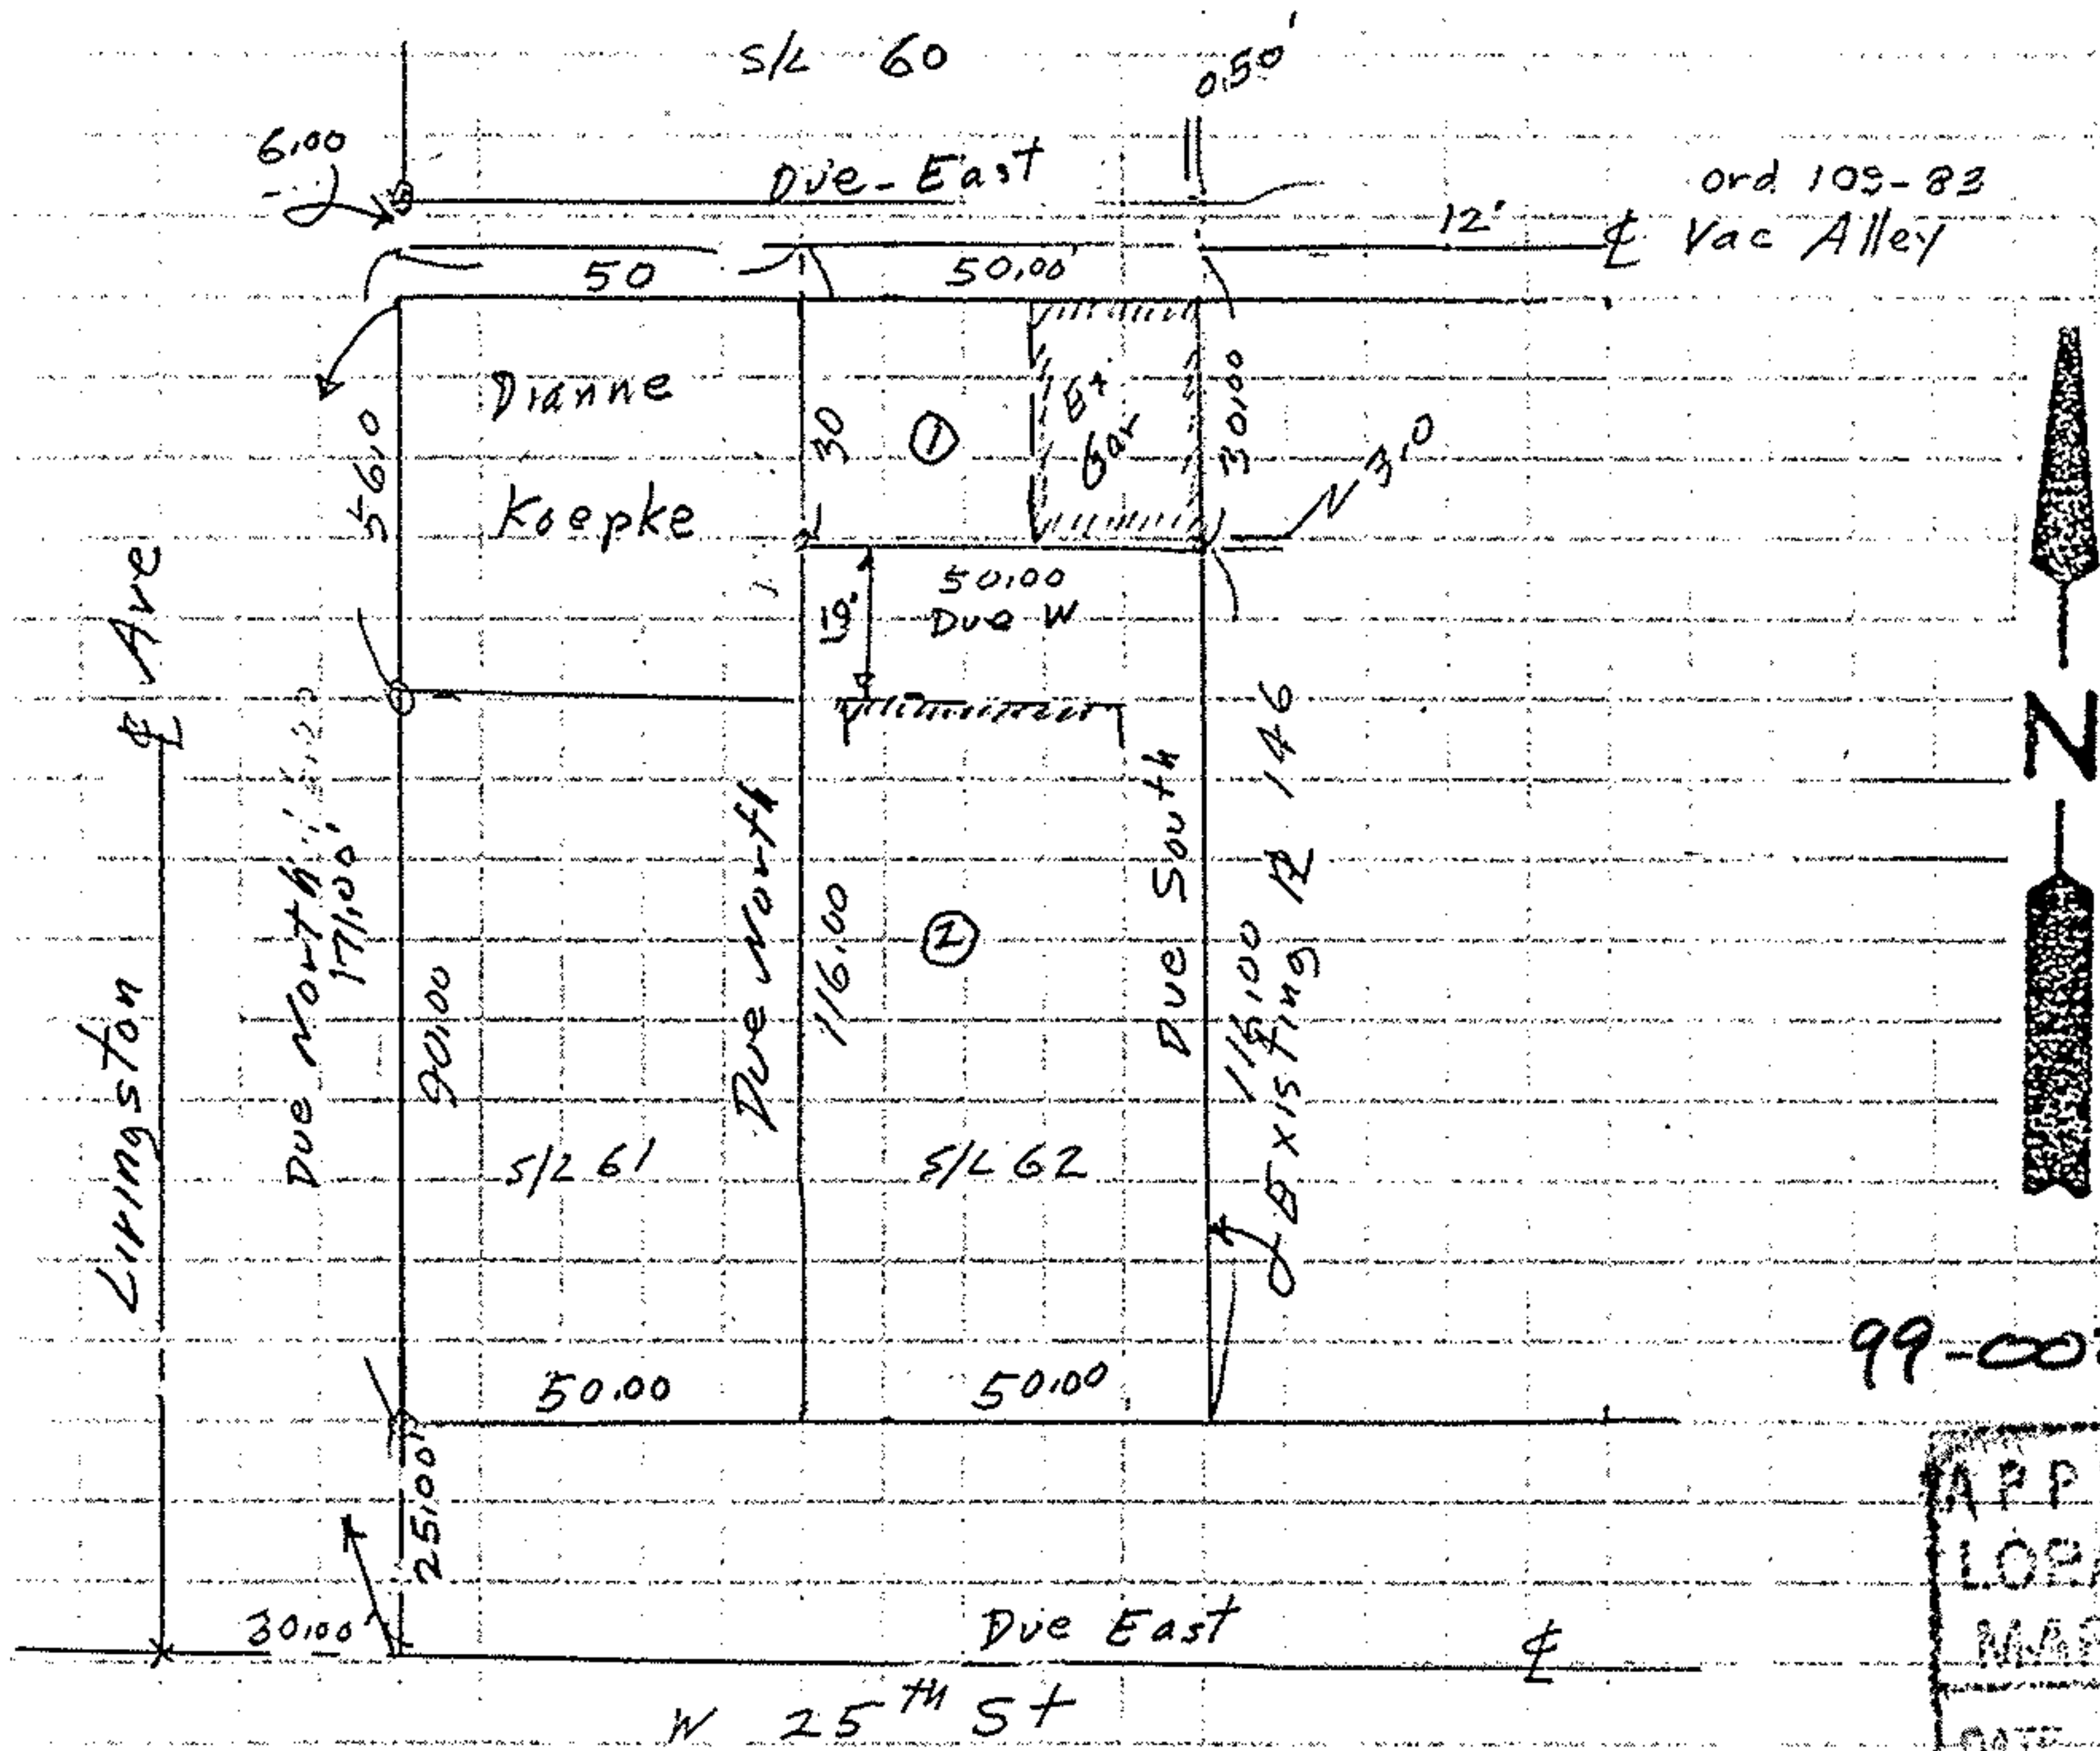 S/L 60
0.50'
6.00
Due-East
ord 105-83
12'
℄ Vac Alley
50
50.00'
Dianne
Koepke
56.0
30
①
Gar
30.00
N 3.0
50.00
Due W
19.
℄ Ave
Livingston
Due North
171.00'
90.00
Due North
116.00
②
Due South
116.00
Existing ℞ 146
N
S/L 61
S/L 62
50.00
50.00
25.00'
30.00'
Due East
℄
W 25th St
99-00
APP
LORA
DATE